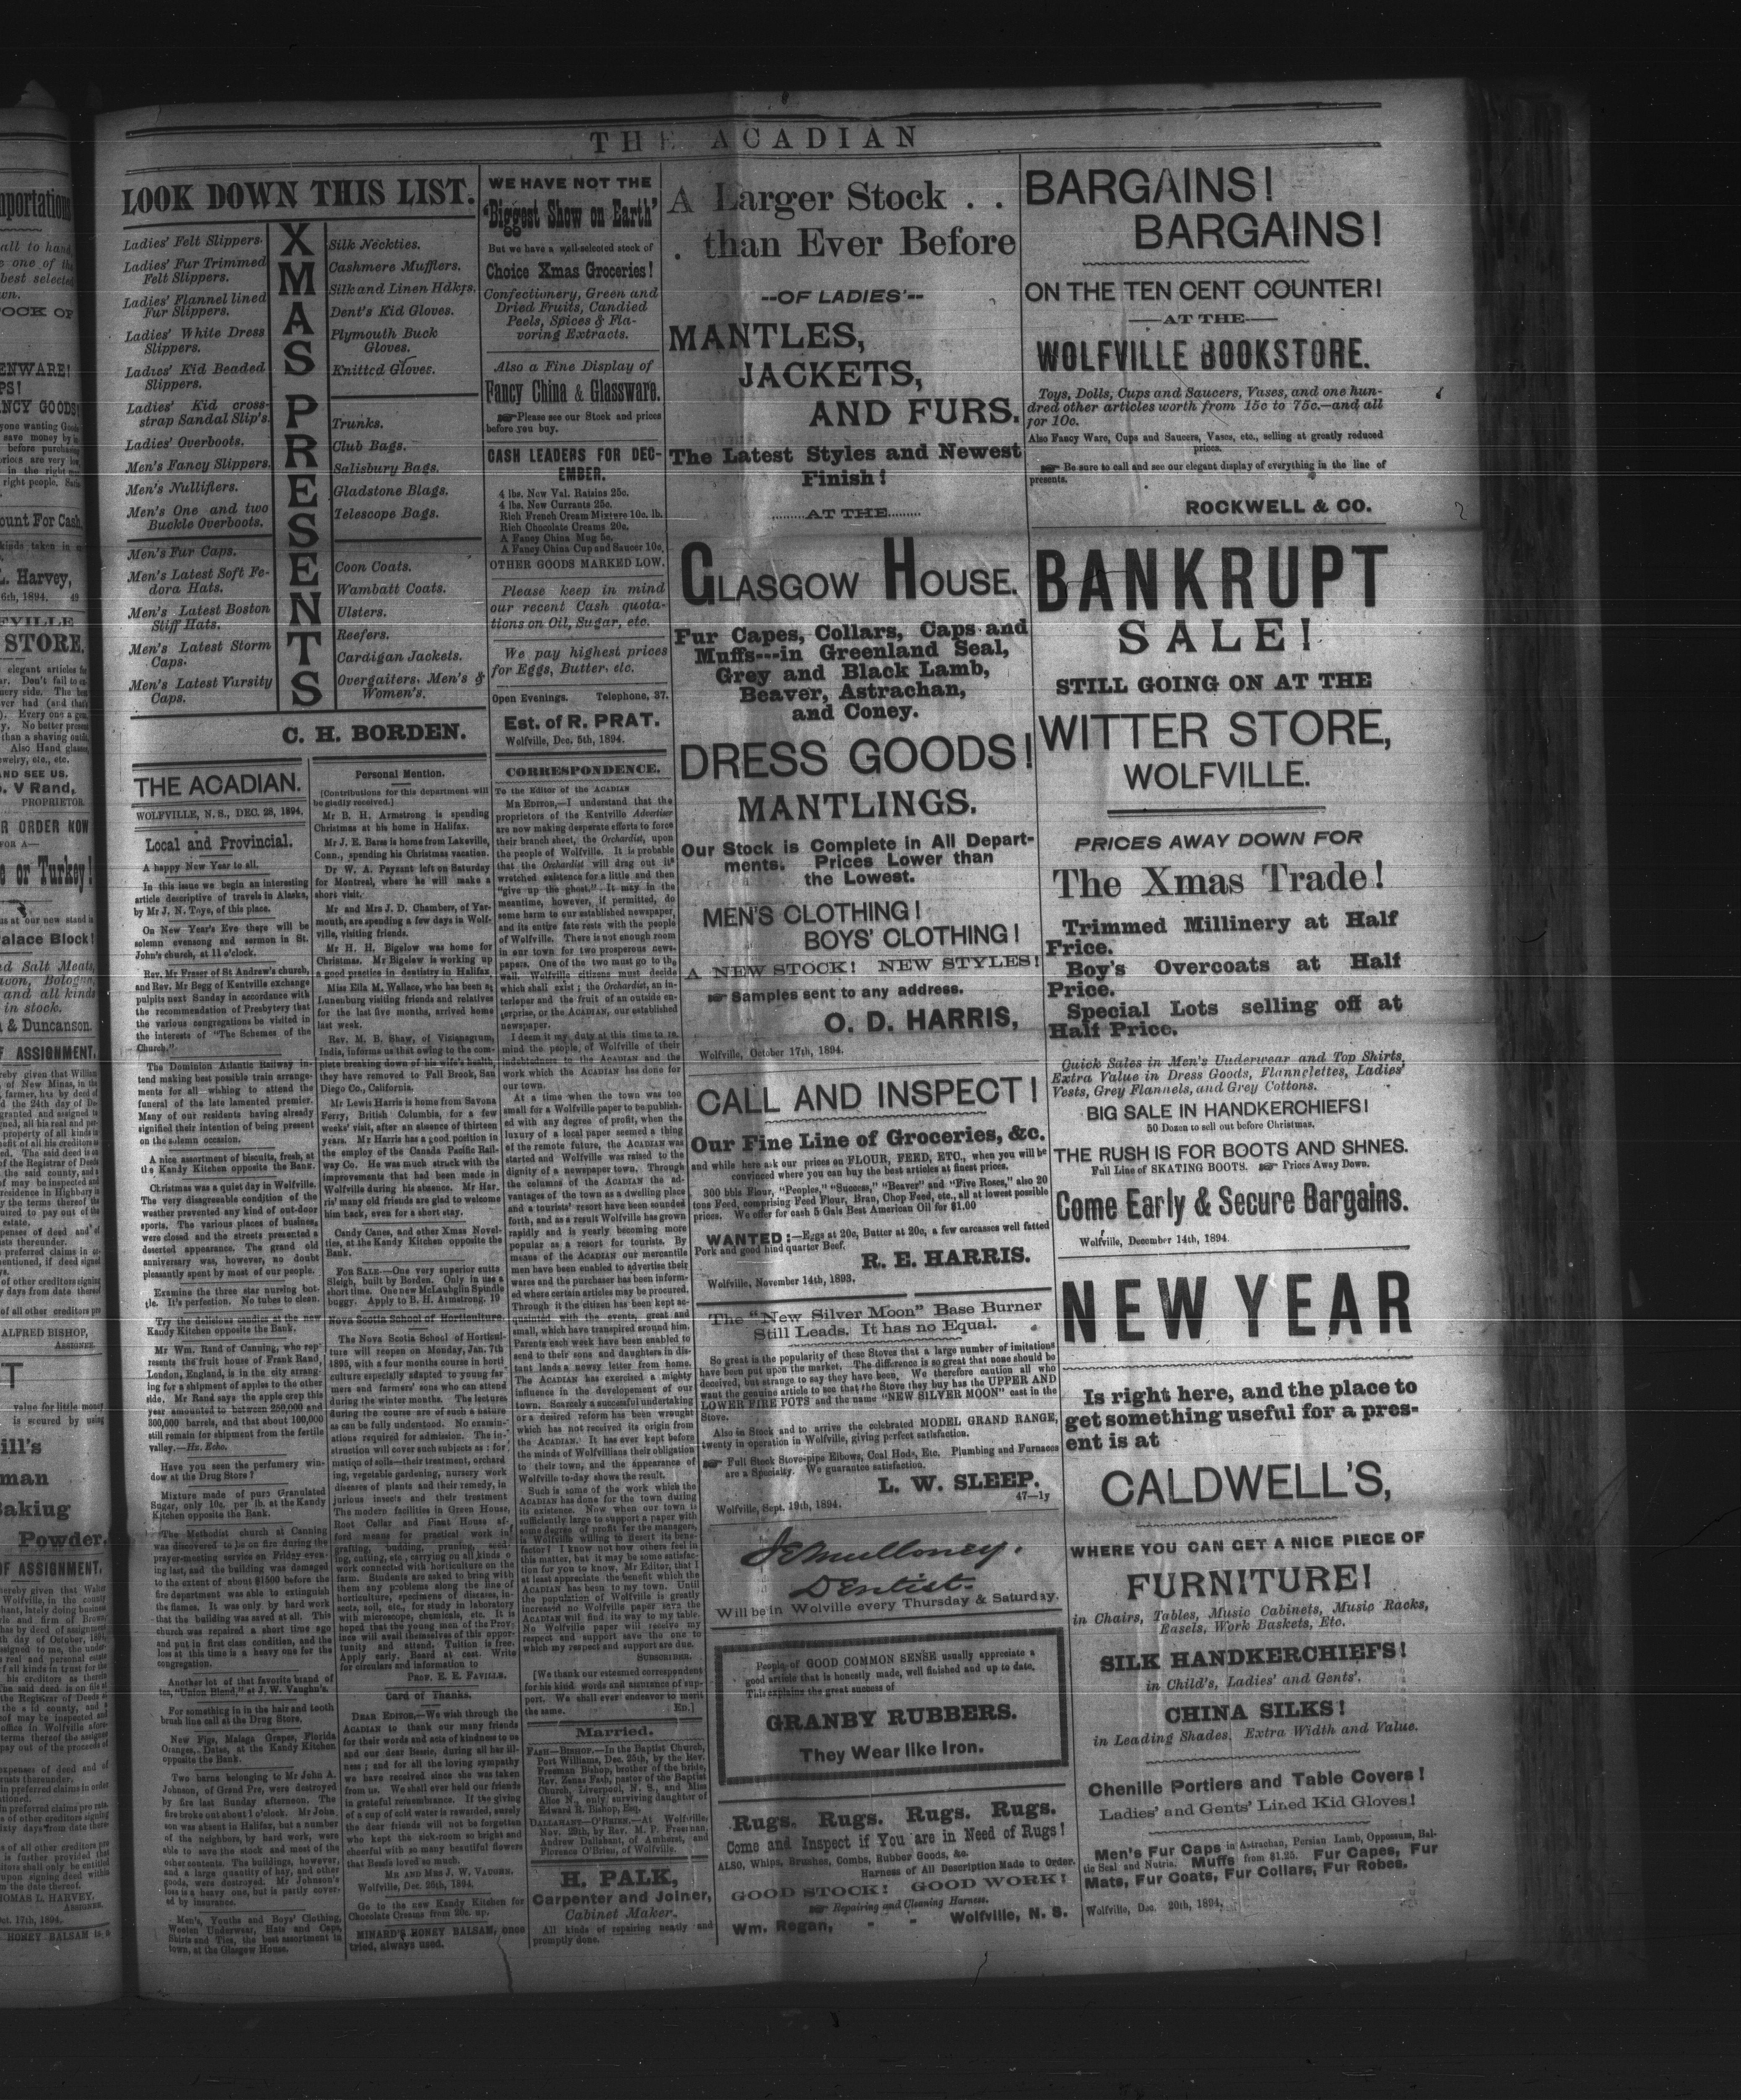 THE ACADIAN
LOOK DOWN THIS LIST.
XMAS PRESENTS
Ladies' Felt Slippers.
Ladies' Fur Trimmed
Felt Slippers.
Ladies' Flannel lined
Fur Slippers.
Ladies' White Dress
Slippers.
Ladies' Kid Beaded
Slippers.
Ladies' Kid cross-
strap Sandal Slip's.
Ladies' Overboots.
Men's Fancy Slippers.
Men's Nullifiers.
Men's One and two
Buckle Overboots.
Men's Fur Caps.
Men's Latest Soft Fe-
dora Hats.
Men's Latest Boston
Stiff Hats.
Men's Latest Storm
Caps.
Men's Latest Varsity
Caps.
Silk Neckties.
Cashmere Mufflers.
Silk and Linen Hdkfs.
Dent's Kid Gloves.
Plymouth Buck
Gloves.
Knitted Gloves.
Trunks.
Club Bags.
Salisbury Bags.
Gladstone Blags.
Telescope Bags.
Coon Coats.
Wambatt Coats.
Ulsters.
Reefers.
Cardigan Jackets.
Overgaiters. Men's &
Women's.
C. H. BORDEN.
THE ACADIAN.
WOLFVILLE, N. S., DEC. 28, 1894.
Local and Provincial.
A happy New Year to all.
In this issue we begin an interesting
article descriptive of travels in Alaska,
by Mr J. N. Toye, of this place.
On New Year's Eve there will be
solemn evensong and sermon in St.
John's church, at 11 o'clock.
Rev. Mr Fraser of St Andrew's church,
and Rev. Mr Begg of Kentville exchange
pulpits next Sunday in accordance with
the recommendation of Presbytery that
the various congregations be visited in
the interests of "The Schemes of the
Church."
The Dominion Atlantic Railway in-
tend making best possible train arrange-
ments for all wishing to attend the
funeral of the late lamented premier.
Many of our residents having already
signified their intention of being present
on the solemn occasion.
A nice assortment of biscuits, fresh, at
the Kandy Kitchen opposite the Bank.
Christmas was a quiet day in Wolfville.
The very disagreeable condition of the
weather prevented any kind of out-door
sports. The various places of business
were closed and the streets presented a
deserted appearance. The grand old
anniversary was, however, no doubt
pleasantly spent by most of our people.
Examine the three star nursing bot-
tle. It's perfection. No tubes to clean.
Try the delicious candies at the new
Kandy Kitchen opposite the Bank.
Mr Wm. Rand of Canning, who rep-
resents the fruit house of Frank Rand,
London, England, is in the city arrang-
ing for a shipment of apples to the other
side. Mr Rand says the apple crop this
year amounted to between 250,000 and
300,000 barrels, and that about 100,000
still remain for shipment from the fertile
valley.—Hx. Echo.
Have you seen the perfumery win-
dow at the Drug Store?
Mixture made of pure Granulated
Sugar, only 10c. per lb. at the Kandy
Kitchen opposite the Bank.
The Methodist church at Canning
was discovered to be on fire during the
prayer-meeting service on Friday even-
ing last, and the building was damaged
to the extent of about $1500 before the
fire department was able to extinguish
the flames. It was only by hard work
that the building was saved at all. This
church was repaired a short time ago
and put in first class condition, and the
loss at this time is a heavy one for the
congregation.
Another lot of that favorite brand of
tea, "Union Blend," at J. W. Vaughn's.
For something in in the hair and tooth
brush line call at the Drug Store.
New Figs, Malaga Grapes, Florida
Oranges, Dates, at the Kandy Kitchen
opposite the Bank.
Two barns belonging to Mr John A.
Johnson, of Grand Pre, were destroyed
by fire last Sunday afternoon. The
fire broke out about 1 o'clock. Mr John-
son was absent in Halifax, but a number
of the neighbors, by hard work, were
able to save the stock and most of the
other contents. The buildings, however,
and a large quantity of hay, and other
goods, were destroyed. Mr Johnson's
loss is a heavy one, but is partly cover-
ed by insurance.
Men's, Youths and Boys' Clothing,
Woolen Underwear, Hats and Caps,
Shirts and Ties, the best assortment in
town, at the Glasgow House.
Personal Mention.
[Contributions for this department will
be gladly received.]
Mr B. H. Armstrong is spending
Christmas at his home in Halifax.
Mr J. E. Barss is home from Lakeville,
Conn., spending his Christmas vacation.
Dr W. A. Payzant left on Saturday
for Montreal, where he will make a
short visit.
Mr and Mrs J. D. Chambers, of Yar-
mouth, are spending a few days in Wolf-
ville, visiting friends.
Mr H. H. Bigelow was home for
Christmas. Mr Bigelow is working up
a good practice in dentistry in Halifax.
Miss Ella M. Wallace, who has been at
Lunenburg visiting friends and relatives
for the last five months, arrived home
last week.
Rev. M. B. Shaw, of Vizianagrum,
India, informs us that owing to the com-
plete breaking down of his wife's health,
they have removed to Fall Brook, San
Diego Co., California.
Mr Lewis Harris is home from Savona
Ferry, British Columbia, for a few
weeks' visit, after an absence of thirteen
years. Mr Harris has a good position in
the employ of the Canada Pacific Rail-
way Co. He was much struck with the
improvements that had been made in
Wolfville during his absence. Mr Har-
ris' many old friends are glad to welcome
him back, even for a short stay.
Candy Canes, and other Xmas Novel-
ties, at the Kandy Kitchen opposite the
Bank.
FOR SALE—One very superior cutta
Sleigh, built by Borden. Only in use a
short time. One new McLaughlin Spindle
buggy. Apply to B. H. Armstrong. 19
Nova Scotia School of Horticulture.
The Nova Scotia School of Horticul-
ture will reopen on Monday, Jan. 7th
1895, with a four months course in horti-
culture especially adapted to young far-
mers and farmers' sons who can attend
during the winter months. The lectures
during the course are of such a nature
as can be fully understood. No examin-
ations required for admission. The in-
struction will cover such subjects as: for-
mation of soils—their treatment, orchard
ing, vegetable gardening, nursery work
diseases of plants and their remedy, in
jurious insects and their treatment
The modern facilities in Green House,
Root Cellar and Plant House af-
ford means for practical work in
grafting, budding, pruning, seed-
ing, cutting, etc., carrying on all kinds o
work connected with horticulture on the
farm. Students are asked to bring with
them any problems along the line of
horticulture, specimens of diseases, in-
sects, soil, etc., for study in laboratory
with microscope, chemicals, etc. It is
hoped that the young men of the Prov-
ince will avail themselves of this oppor-
tunity and attend. Tuition is free.
Apply early. Board at cost. Write
for circulars and information to
PROF. E. E. FAVILLE.
Card of Thanks.
DEAR EDITOR,—We wish through the
ACADIAN to thank our many friends
for their words and acts of kindness to us
and our dear Bessie, during all her ill-
ness; and for all the loving sympathy
we have received since she was taken
from us. We shall ever hold our friends
in grateful remembrance. If the giving
of a cup of cold water is rewarded, surely
the dear friends will not be forgotten
who kept the sick-room so bright and
cheerful with so many beautiful flowers
that Bessie loved so much.
MR AND MRS J. W. VAUGHN.
Wolfville, Dec. 26th, 1894.
Go to the new Kandy Kitchen for
Chocolate Creams from 20c. up.
MINARD'S HONEY BALSAM, once
tried, always used.
WE HAVE NOT THE
"Biggest Show on Earth"
But we have a well-selected stock of
Choice Xmas Groceries!
Confectionery, Green and
Dried Fruits, Candied
Peels, Spices & Fla-
voring Extracts.
Also a Fine Display of
Fancy China & Glassware.
Please see our Stock and prices
before you buy.
CASH LEADERS FOR DEC-
EMBER.
4 lbs. New Val. Raisins 25c.
4 lbs. New Currants 25c.
Rich French Cream Mixture 10c. lb.
Rich Chocolate Creams 20c.
A Fancy China Mug 5c.
A Fancy China Cup and Saucer 10c.
OTHER GOODS MARKED LOW.
Please keep in mind
our recent Cash quota-
tions on Oil, Sugar, etc.
We pay highest prices
for Eggs, Butter, etc.
Open Evenings. Telephone, 37.
Est. of R. PRAT.
Wolfville, Dec. 5th, 1894.
CORRESPONDENCE.
To the Editor of the ACADIAN
MR EDITOR,—I understand that the
proprietors of the Kentville Advertiser
are now making desperate efforts to force
their branch sheet, the Orchardist, upon
the people of Wolfville. It is probable
that the Orchardist will drag out its
wretched existence for a little and then
"give up the ghost." It may in the
meantime, however, if permitted, do
some harm to our established newspaper,
and its entire fate rests with the people
of Wolfville. There is not enough room
in our town for two prosperous news-
papers. One of the two must go to the
wall. Wolfville citizens must decide
which shall exist; the Orchardist, an in-
terloper and the fruit of an outside en-
terprise, or the ACADIAN, our established
newspaper.
I deem it my duty at this time to re-
mind the people of Wolfville of their
indebtedness to the ACADIAN and the
work which the ACADIAN has done for
our town.
At a time when the town was too
small for a Wolfville paper to be publish-
ed with any degree of profit, when the
luxury of a local paper seemed a thing
of the remote future, the ACADIAN was
started and Wolfville was raised to the
dignity of a newspaper town. Through
the columns of the ACADIAN the ad-
vantages of the town as a dwelling place
and a tourists' resort have been sounded
forth, and as a result Wolfville has grown
rapidly and is yearly becoming more
popular as a resort for tourists. By
means of the ACADIAN our mercantile
men have been enabled to advertise their
wares and the purchaser has been inform-
ed where certain articles may be procured.
Through it the citizen has been kept ac-
quainted with the events, great and
small, which have transpired around him.
Parents each week have been enabled to
send to their sons and daughters in dis-
tant lands a newsy letter from home.
The ACADIAN has exercised a mighty
influence in the developement of our
town. Scarcely a successful undertaking
or a desired reform has been wrought
which has not received its origin from
the ACADIAN. It has ever kept before
the minds of Wolfvillians their obligation
to their town, and the appearance of
Wolfville to-day shows the result.
Such is some of the work which the
ACADIAN has done for the town during
its existence. Now when our town is
sufficiently large to support a paper with
some degree of profit for the managers,
is Wolfville willing to desert its bene-
factor! I know not how others feel in
this matter, but it may be some satisfac-
tion for you to know, Mr Editor, that I
at least appreciate the benefit which the
ACADIAN has been to my town. Until
the population of Wolfville is greatly
increased no Wolfville paper save the
ACADIAN will find its way to my table.
No Wolfville paper will receive my
respect and support save the one to
which my respect and support are due.
SUBSCRIBER.
[We thank our esteemed correspondent
for his kind words and assurance of sup-
port. We shall ever endeavor to merit
the same. ED.]
Married.
FASH—BISHOP.—In the Baptist Church,
Port Williams, Dec. 25th, by the Rev.
Freeman Bishop, brother of the bride,
Rev. Zenas Fash, pastor of the Baptist
Church, Liverpool, N. S., and Miss
Alice N., only surviving daughter of
Edward R. Bishop, Esq.
DALLAHANT—O'BRIEN.—At Wolfville,
Nov. 29th, by Rev. M. P. Freeman,
Andrew Dallahant, of Amherst, and
Florence O'Brien, of Wolfville.
H. PALK,
Carpenter and Joiner,
Cabinet Maker.
All kinds of repairing neatly and
promptly done.
A Larger Stock . .
. than Ever Before
--OF LADIES'--
MANTLES,
JACKETS,
AND FURS.
The Latest Styles and Newest
Finish!
........AT THE........
GLASGOW HOUSE.
Fur Capes, Collars, Caps and
Muffs---in Greenland Seal,
Grey and Black Lamb,
Beaver, Astrachan,
and Coney.
DRESS GOODS!
MANTLINGS.
Our Stock is Complete in All Depart-
ments. Prices Lower than
the Lowest.
MEN'S CLOTHING!
BOYS' CLOTHING!
A NEW STOCK! NEW STYLES!
Samples sent to any address.
O. D. HARRIS,
Wolfville, October 17th, 1894.
CALL AND INSPECT!
Our Fine Line of Groceries, &c.
and while here ask our prices on FLOUR, FEED, ETC., when you will be
convinced where you can buy the best articles at finest prices.
300 bbls Flour, "Peoples," "Success," "Beaver" and "Five Roses," also 20
tons Feed, comprising Feed Flour, Bran, Chop Feed, etc., all at lowest possible
prices. We offer for cash 5 Gals Best American Oil for $1.00
WANTED:—Eggs at 20c, Butter at 20c, a few carcasses well fatted
Pork and good hind quarter Beef.
R. E. HARRIS.
Wolfville, November 14th, 1893.
The "New Silver Moon" Base Burner
Still Leads. It has no Equal.
So great is the popularity of these Stoves that a large number of imitations
have been put upon the market. The difference is so great that none should be
deceived, but strange to say they have been. We therefore caution all who
want the genuine article to see that the Stove they buy has the UPPER AND
LOWER FIRE POTS and the name "NEW SILVER MOON" cast in the
Stove.
Also in Stock and to arrive the celebrated MODEL GRAND RANGE,
twenty in operation in Wolfville, giving perfect satisfaction.
Full Stock Stove-pipe Elbows, Coal Hods, Etc. Plumbing and Furnaces
are a Specialty. We guarantee satisfaction.
L. W. SLEEP.
Wolfville, Sept. 19th, 1894. 47—1y
J E Mulloney.
Dentist.
Will be in Wolville every Thursday & Saturday.
People of GOOD COMMON SENSE usually appreciate a
good article that is honestly made, well finished and up to date,
This explains the great success of
GRANBY RUBBERS.
They Wear like Iron.
Rugs. Rugs. Rugs. Rugs.
Come and Inspect if You are in Need of Rugs!
ALSO, Whips, Brushes, Combs, Rubber Goods, &c.
Harness of All Description Made to Order.
GOOD STOCK! GOOD WORK!
Repairing and Cleaning Harness.
Wm. Regan, " " Wolfville, N. S.
BARGAINS!
BARGAINS!
ON THE TEN CENT COUNTER!
—AT THE—
WOLFVILLE BOOKSTORE.
Toys, Dolls, Cups and Saucers, Vases, and one hun-
dred other articles worth from 15c to 75c.—and all
for 10c.
Also Fancy Ware, Cups and Saucers, Vases, etc., selling at greatly reduced
prices.
Be sure to call and see our elegant display of everything in the line of
presents.
ROCKWELL & CO.
BANKRUPT
SALE!
STILL GOING ON AT THE
WITTER STORE,
WOLFVILLE.
PRICES AWAY DOWN FOR
The Xmas Trade!
Trimmed Millinery at Half
Price.
Boy's Overcoats at Half
Price.
Special Lots selling off at
Half Price.
Quick Sales in Men's Underwear and Top Shirts,
Extra Value in Dress Goods, Flannelettes, Ladies'
Vests, Grey Flannels, and Grey Cottons.
BIG SALE IN HANDKERCHIEFS!
50 Dozen to sell out before Christmas.
THE RUSH IS FOR BOOTS AND SHNES.
Full Line of SKATING BOOTS. Prices Away Down.
Come Early & Secure Bargains.
Wolfville, December 14th, 1894.
NEW YEAR
Is right here, and the place to
get something useful for a pres-
ent is at
CALDWELL'S,
WHERE YOU CAN GET A NICE PIECE OF
FURNITURE!
in Chairs, Tables, Music Cabinets, Music Racks,
Easels, Work Baskets, Etc.
SILK HANDKERCHIEFS!
in Child's, Ladies' and Gents'.
CHINA SILKS!
in Leading Shades, Extra Width and Value.
Chenille Portiers and Table Covers!
Ladies' and Gents' Lined Kid Gloves!
Men's Fur Caps in Astrachan, Persian Lamb, Oppossum, Bal-
tic Seal and Nutria. Muffs from $1.25. Fur Capes, Fur
Mats, Fur Coats, Fur Collars, Fur Robes.
Wolfville, Dec. 20th, 1894.